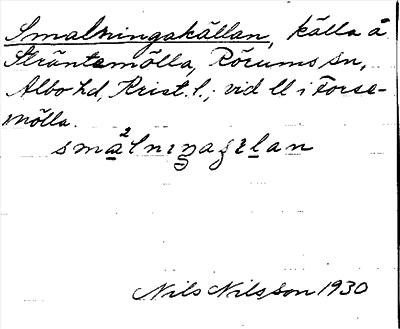 Smalningakällan, källa å
Sträntemölla, Rörums sn,
Albo hd, Krist. l.; vid ll i Forse-
mölla.
Nils Nilsson 1930